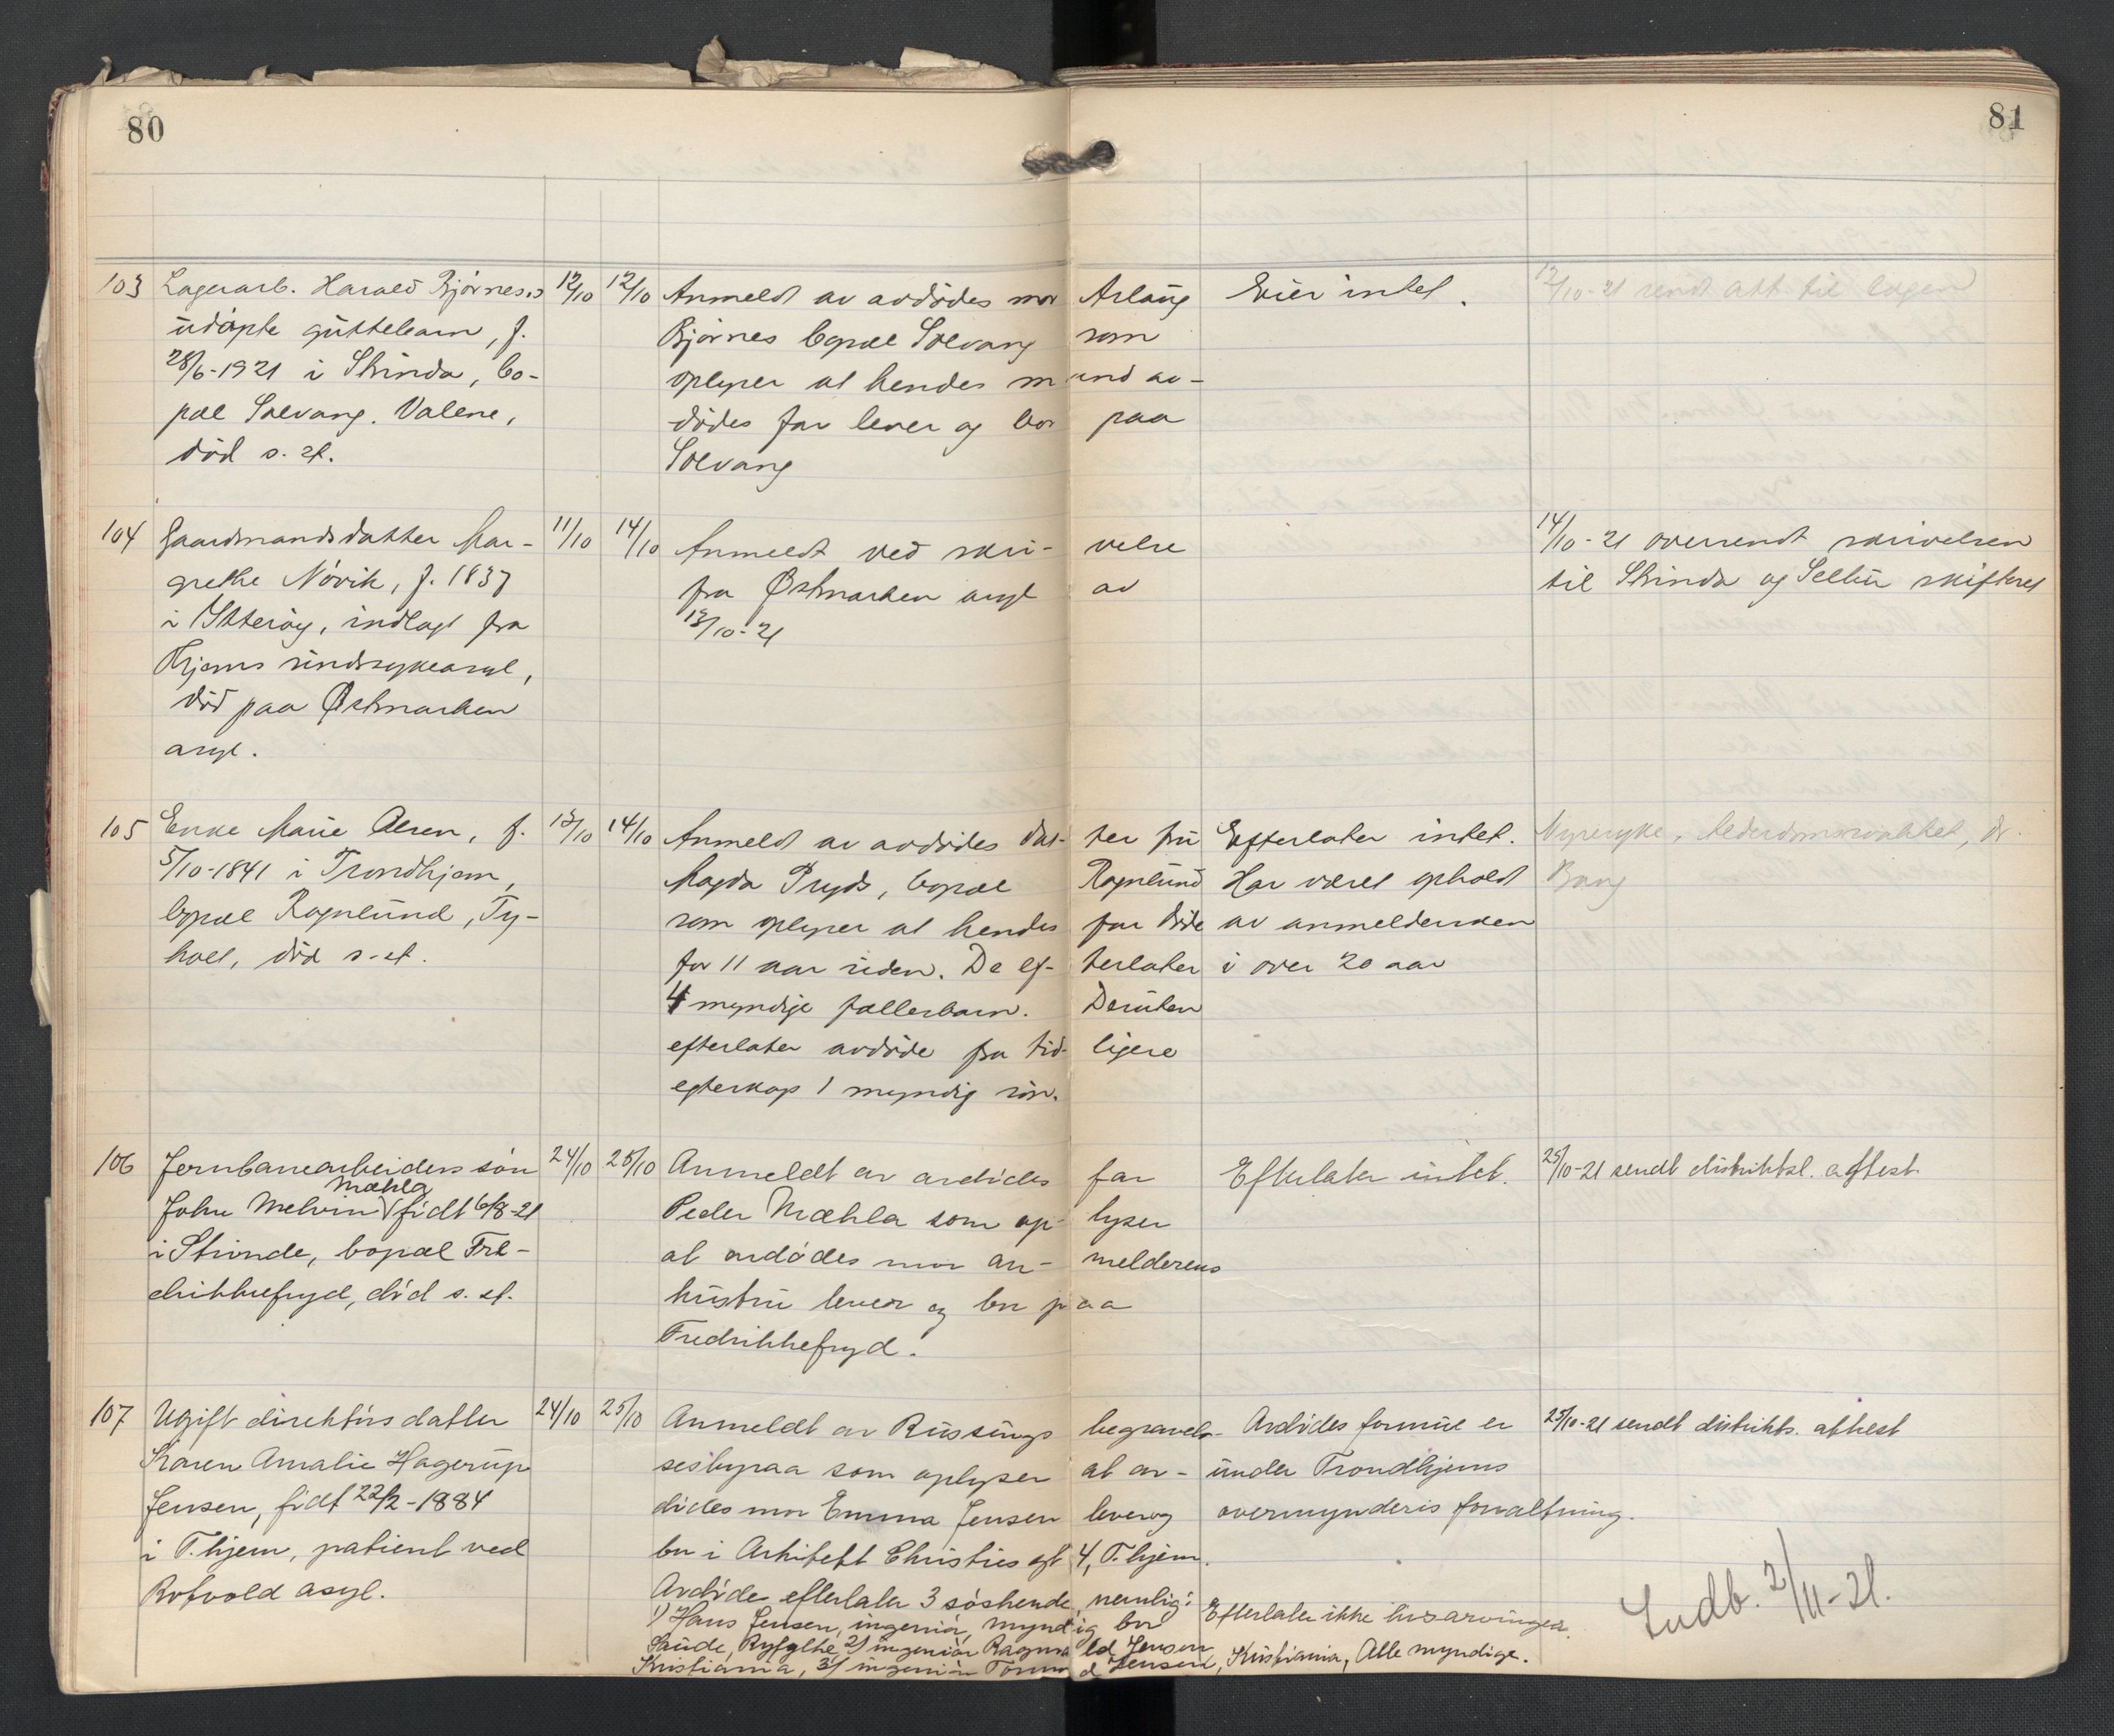 80
81
103 Lagerarb. Harald Bjørnes's 12/10 12/10 Anmeldt av avdødes mor Aslaug Eier intet. 12/10-21 sendt att til lagen
udøpte guttebarn, f. Bjørnes bopæl Solvang som
28/6-1921 i Strinda, bo- oplyser at hendes mand av-
pæl Solvang. Valene, dødes far lever og bor paa
död s. st. Solvang
104 Gaardmandsdatter Mar- 11/10 14/10 Anmeldt ved skri- velse 14/10-21 oversendt skrivelsen
grethe Növik, f. 1837 fra Østmarken asyl av til Strinda og Selbu skifteret
i Ytterøy, indlagt fra 13/10-21
Thjems sindssykeasyl,
död paa Østmarken
asyl.
105 Enke Marie Olsen, f. 13/10 14/10 Anmeldt av avdødes dat- ter fru Efterlater intet. Nyresyke, Alderdomssvakhet, dr.
5/10-1841 i Trondhjem, Magda Pryds, bopæl Rognlund Har været opholdt Bang
bopæl Rognlund, Ty- som oplyser at hendes far døde av anmeldersken
holt, död s. st. for 11 aar siden. De ef- terlater i over 20 aar
4 myndige fællesbarn. Desuten
efterlater avdøde fra tid- ligere
egteskap 1 myndig søn.
106 Jernbanearbeiders sön 24/10 25/10 Anmeldt av avdödes far Efterlater intet. 25/10-21 sendt distriktsl. attest
Mæhla
John Melvin födt 6/8-21 Peder Mæhla som op- lyser
i Strinda, bopæl Fre- at avdødes mor an- melderens
drikkefryd, död s. st. hustru lever og bor paa
Fredrikkefryd.
107 Ugift direktörs datter 24/10 25/10 Anmeldt av Russungs begravel- Avdödes formue er 25/10-21 sendt distrikts. attest
Karen Amalie Hagerup sesbyraa som oplyser at av- under Trondhjems
Jensen, födt 22/2-1884 dödes mor Emma Jensen lever og overmynderis forvaltning.
i T.hjem, patient ved bor i Arkitekt Christies gt 4, T.hjem.
Rotvold asyl. Avdöde efterlater 3 söskende, nemlig:
1) Hans Jensen, ingeniör, myndig bor Efterlater ikke livsarvinger.
Saude, Ryfylke 2) ingeniör Ragnvald Jensen
Kristiania, 3) ingeniör Tormod Jensen, Kristiania, Alle myndige.
Indb. 2/11-21.